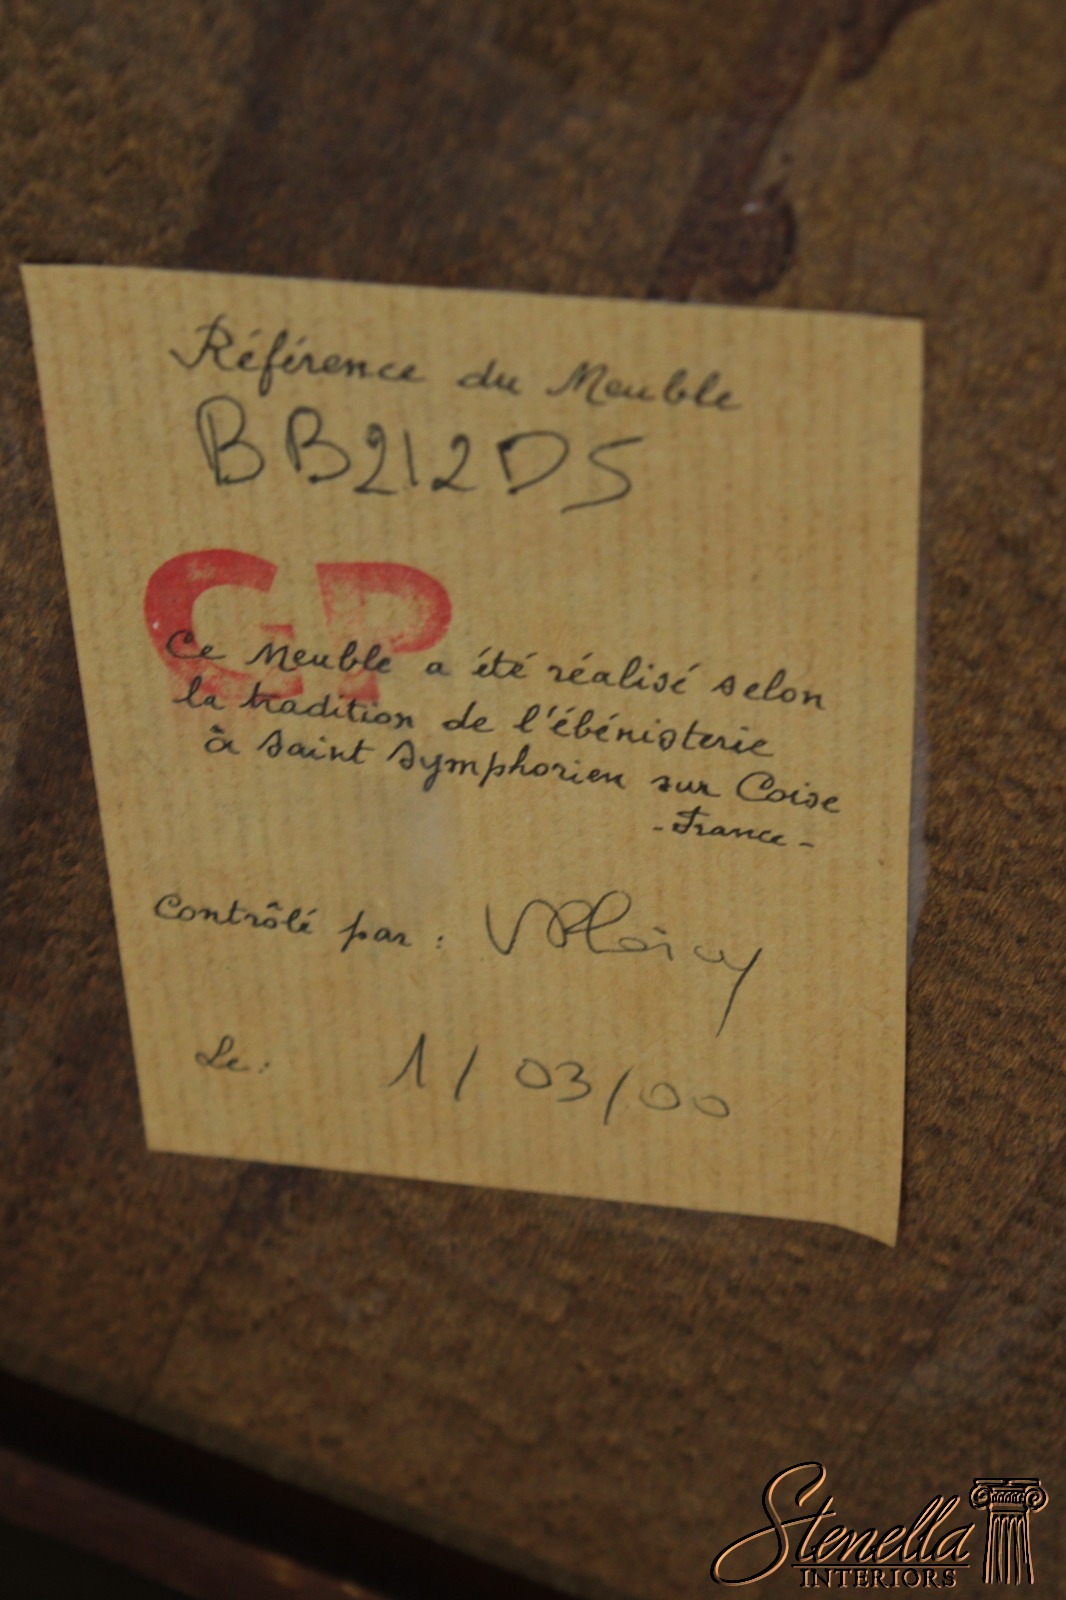 Référence du Meuble
BB212DS
GP
Ce Meuble a été réalisé selon
la tradition de l'ébénisterie
à saint symphorien sur Coise
- France -
Contrôlé par :
Le : 1/03/00
Stenella
INTERIORS